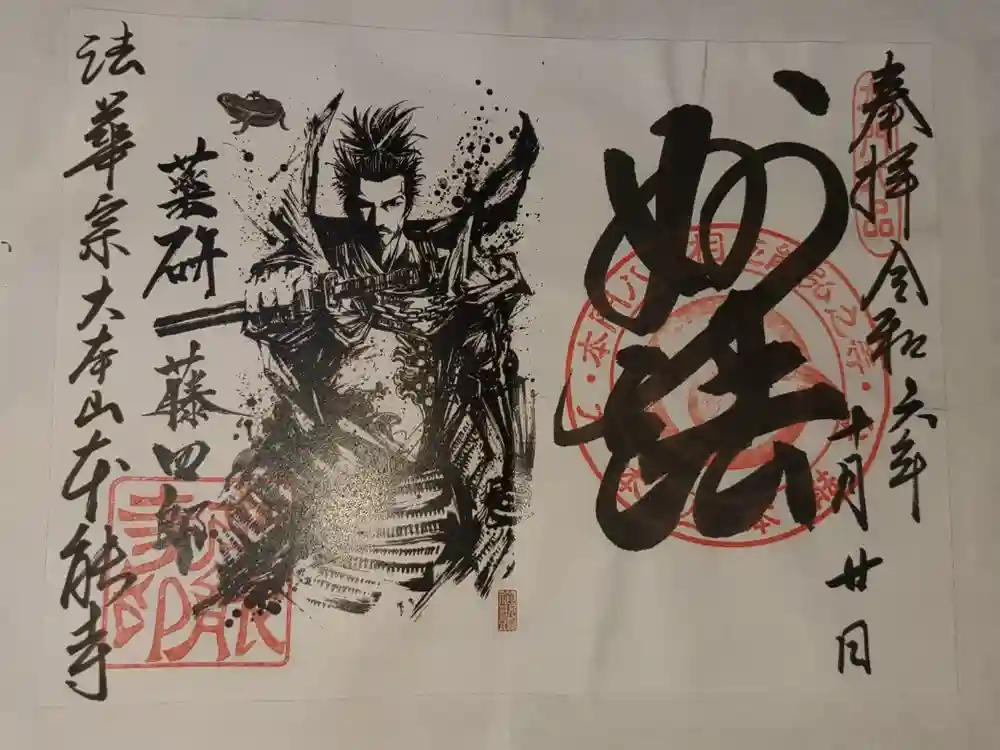 奉拝
令和六年
十月廿日
妙法
薬研藤四郎
法華宗大本山本能寺